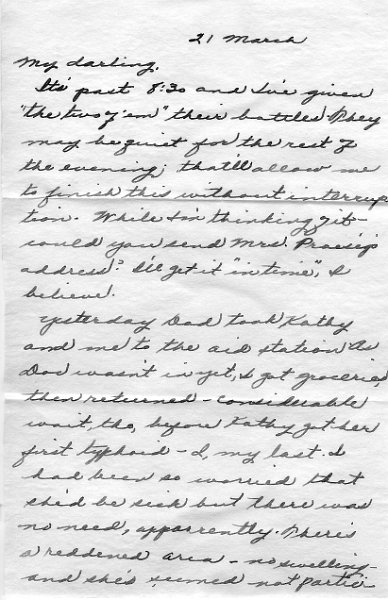 21 March
My darling,
It's past 8:30 and I've given
"the two of 'em" their bottles. They
may be quiet for the rest of
the evening; that'll allow me
to finish this without interrup-
tion. While I'm thinking of it -
would you send Mrs. address? I'll get it "in time", I
believe.
Yesterday Dad took Kathy
and me to the aid station. As
Doc wasn't in yet, I got groceries,
then returned - considerable
wait, tho, before Kathy got her
first typhoid - I, my last. I
had been so worried that
she'd be sick but there was
no need, apparently. There's
a reddened area - no swelling -
and she's seemed not partic-